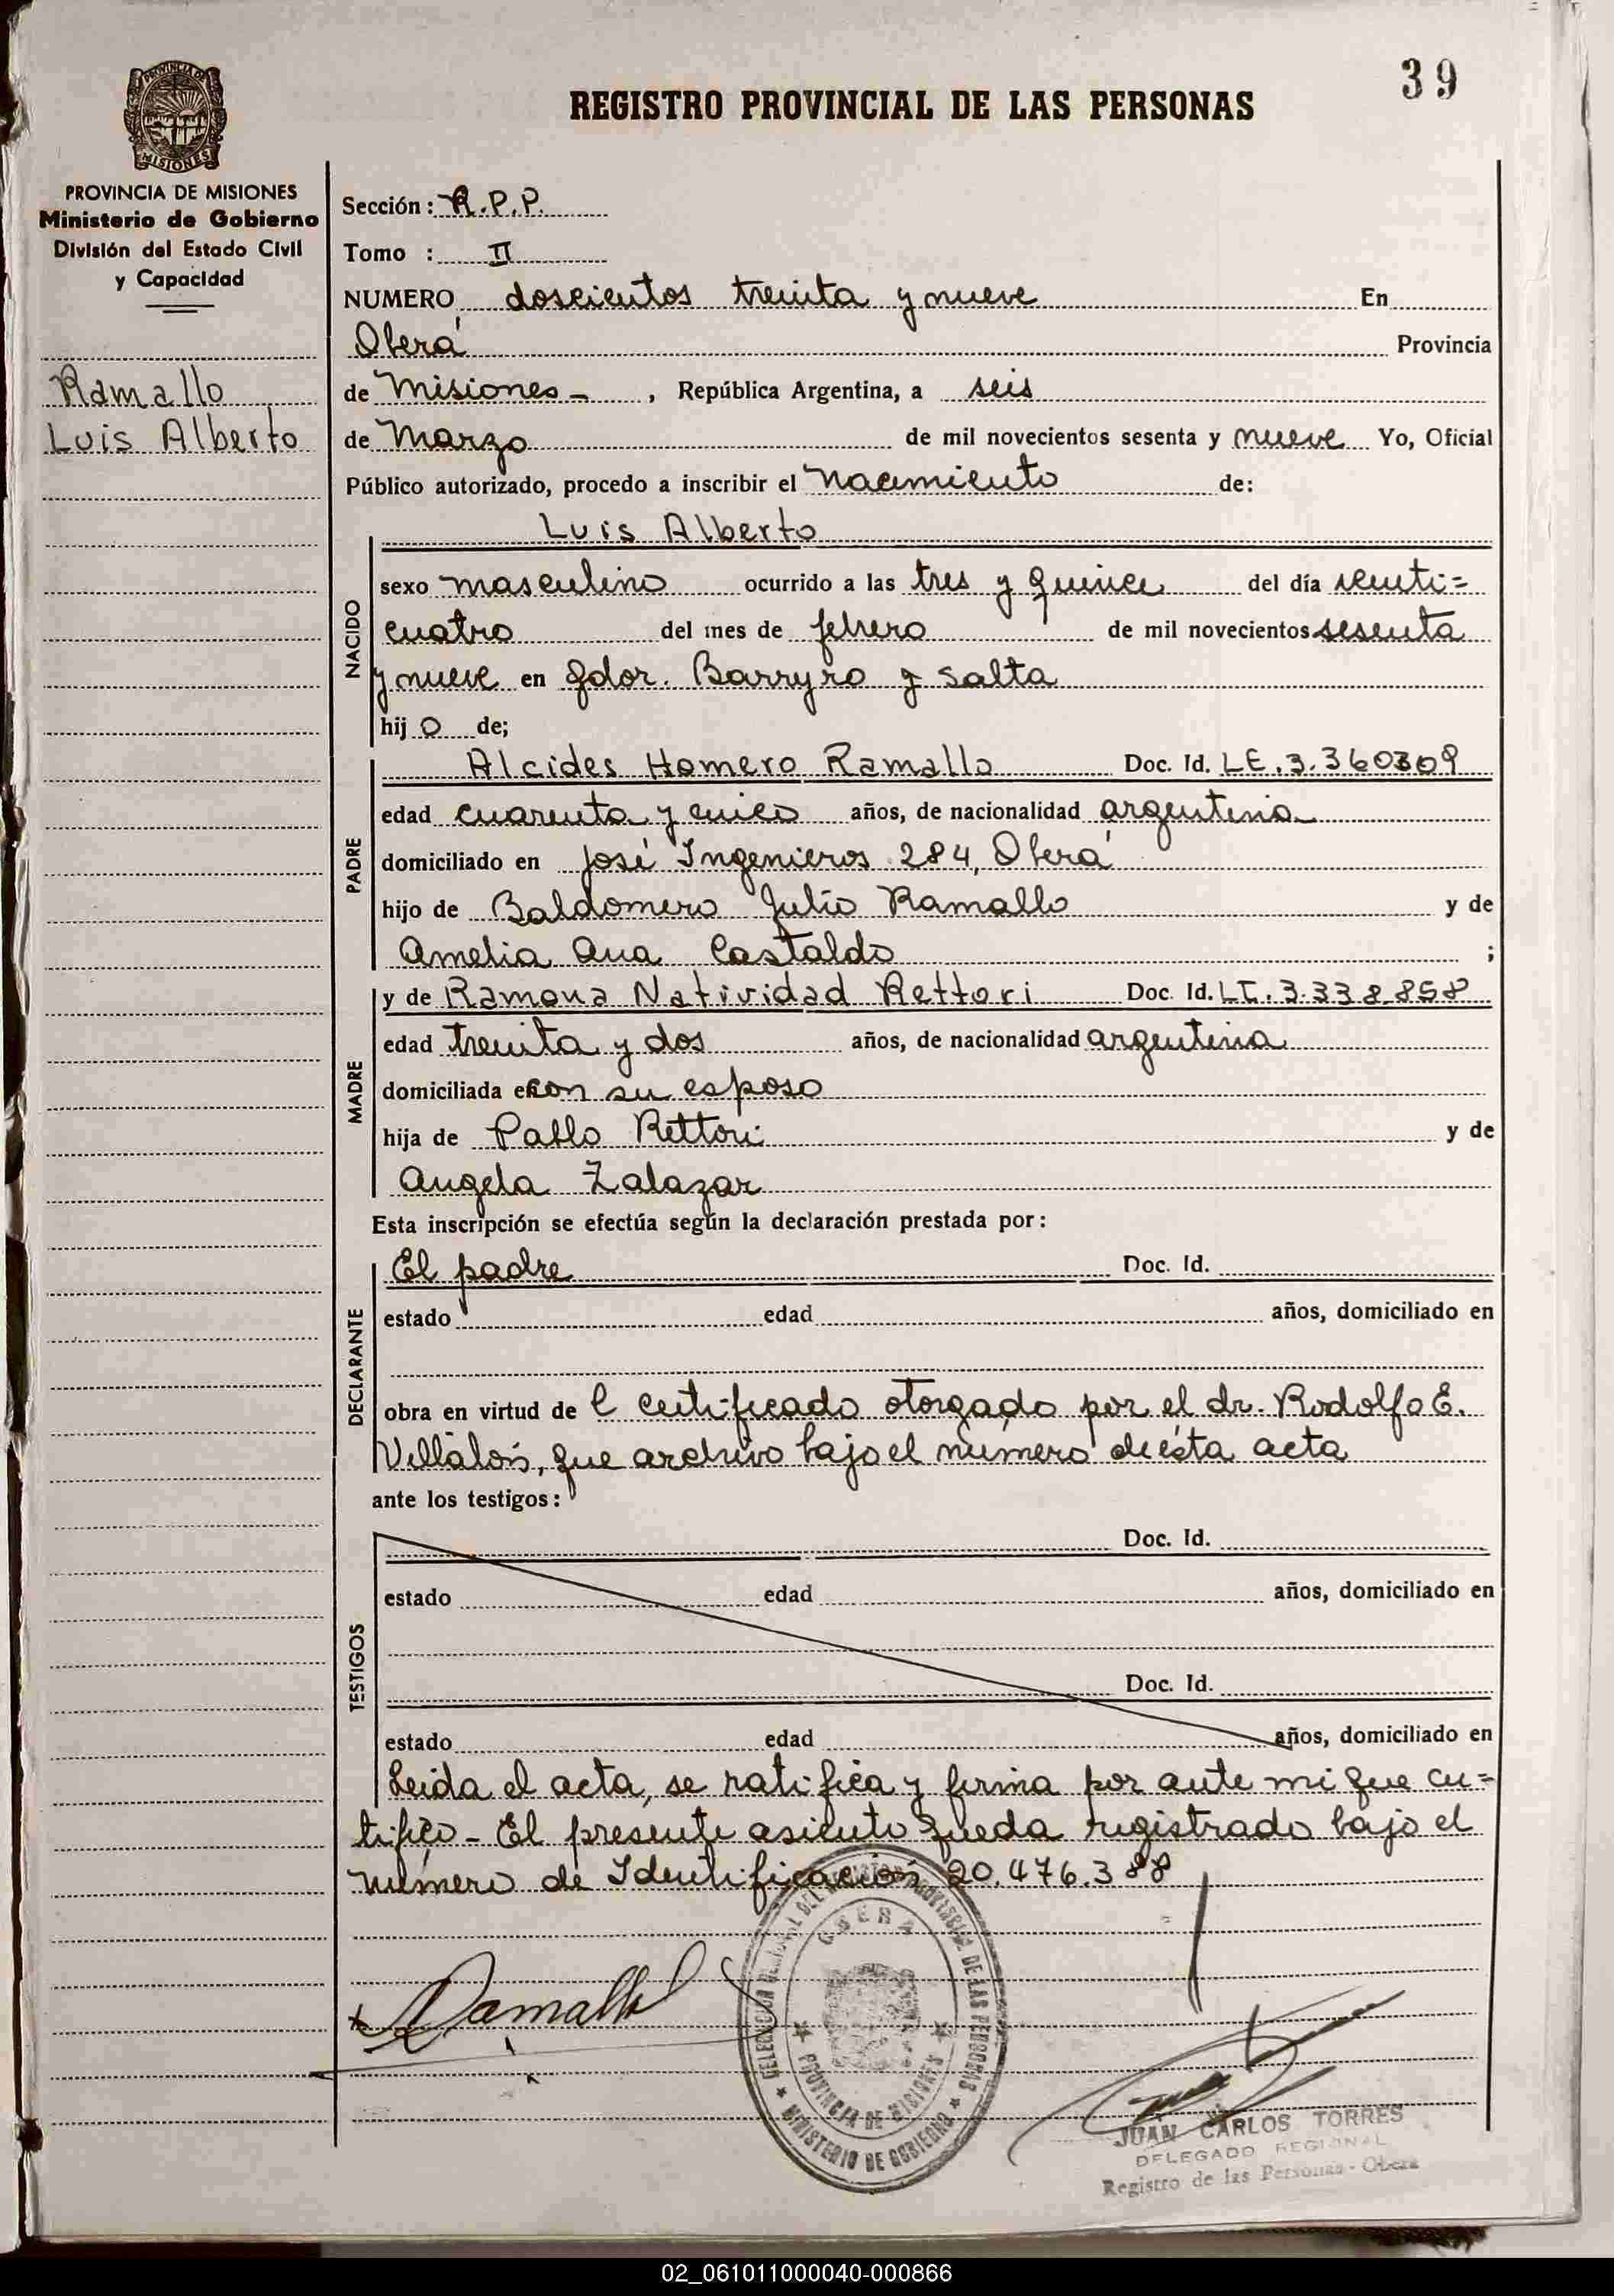 39
REGISTRO PROVINCIAL DE LAS PERSONAS
PROVINCIA DE
MISIONES
PROVINCIA DE MISIONES
Ministerio de Gobierno
División del Estado Civil
y Capacidad
Ramallo
Luis Alberto
Sección: R.P.P.
Tomo : II
NUMERO doscientos treinta y nueve En
Oberá Provincia
de Misiones - , República Argentina, a seis
de Marzo de mil novecientos sesenta y nueve Yo, Oficial
Público autorizado, procedo a inscribir el nacimiento de:
NACIDO
Luis Alberto
sexo masculino ocurrido a las tres y quince del día veinti=
cuatro del mes de febrero de mil novecientos sesenta
y nueve en gdor. Barreyro y Salta
hijo de;
PADRE
Alcides Homero Ramallo Doc. Id. LE.3.360309
edad cuarenta y cinco años, de nacionalidad argentina
domiciliado en José Ingenieros 284, Oberá
hijo de Baldomero Julio Ramallo y de
Amelia Ana Castaldo ;
MADRE
y de Ramona Natividad Rettori Doc. Id. LC.3.338.858
edad treinta y dos años, de nacionalidad argentina
domiciliada con su esposo
hija de Pablo Rettori y de
Angela Zalazar
Esta inscripción se efectúa según la declaración prestada por:
DECLARANTE
El padre Doc. Id.
estado edad años, domiciliado en
obra en virtud de l certificado otorgado por el dr. Rodolfo E.
que archivo bajo el número de ésta acta
ante los testigos:
TESTIGOS
Doc. Id.
estado edad años, domiciliado en
Doc. Id.
estado edad años, domiciliado en
Leida el acta, se ratifica y firma por ante mi que cer=
tifico - El presente asiento queda registrado bajo el
número de Identificación 20.476.388
Ramallo
OBERA
PROVINCIA DE LAS PERSONAS
PROVINCIA DE MISIONES
MINISTERIO DE GOBIERNO
JUAN CARLOS TORRES
DELEGADO REGIONAL
Registro de las Personas - Obera
02_061011000040-000866